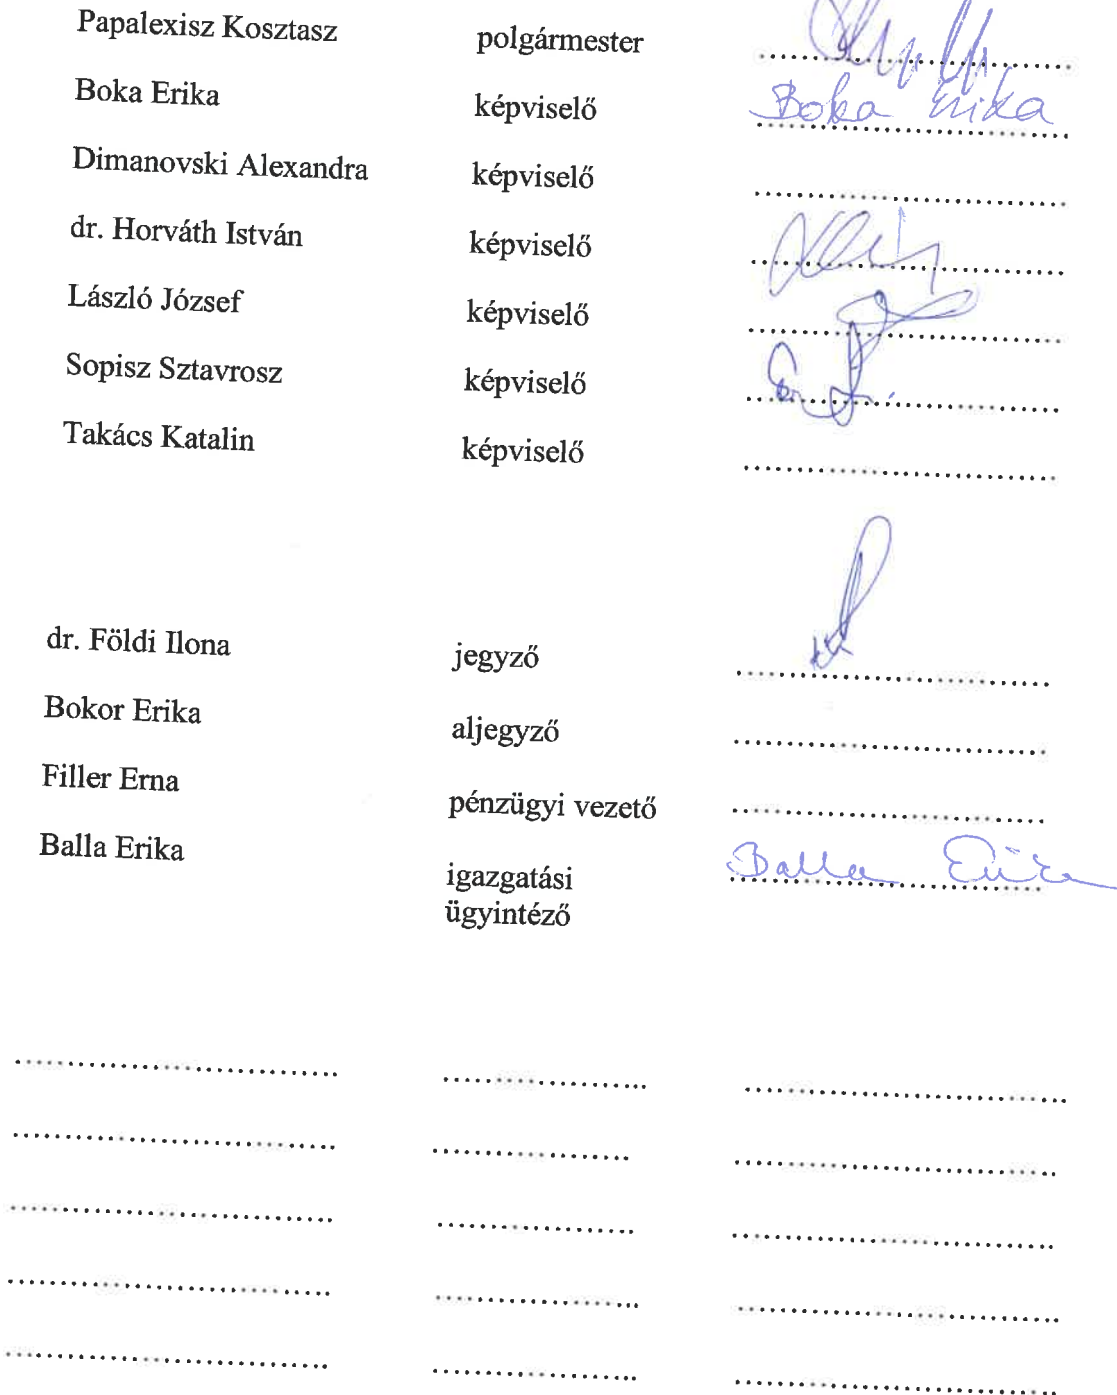 Papalexisz Kosztasz polgármester
Boka Erika képviselő Boka Erika
Dimanovski Alexandra képviselő
dr. Horváth István képviselő
László József képviselő
Sopisz Sztavrosz képviselő
Takács Katalin képviselő
dr. Földi Ilona jegyző
Bokor Erika aljegyző
Filler Erna pénzügyi vezető
Balla Erika igazgatási Balla Erika
ügyintéző